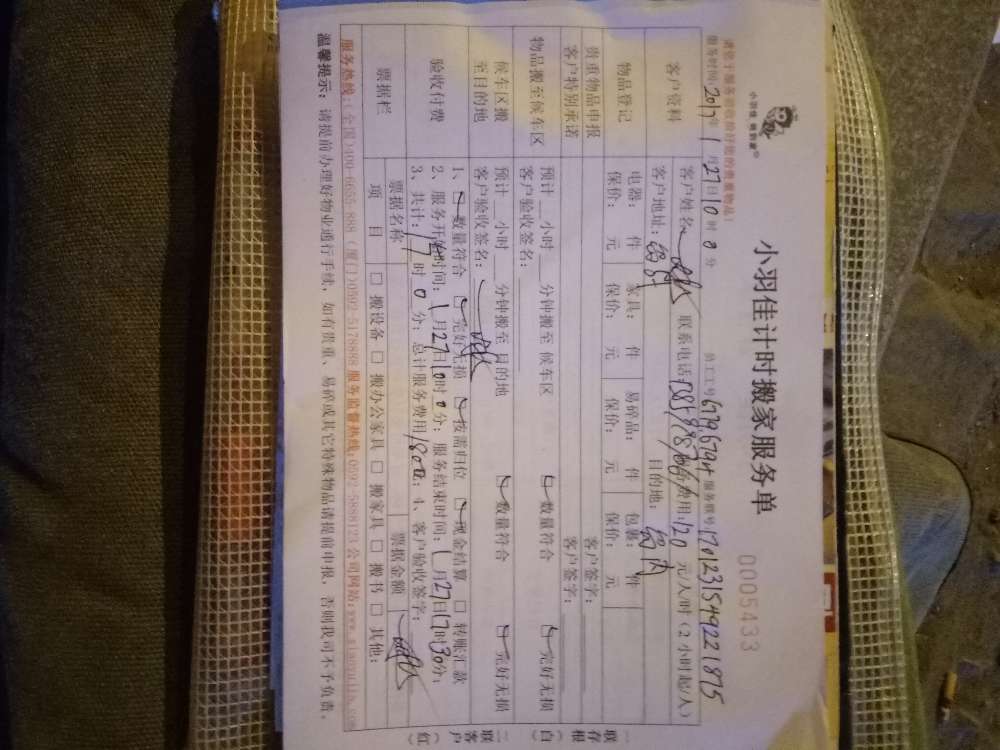 小羽佳 搬到家®
小羽佳计时搬家服务单
0005433
请您于服务前收捡好您的贵重物品!
服务时间:2017年1月27日10时0分 员工工号67796794 服务联号:1701231549221875
客户资料
客户姓名: 联系电话 服务费用:120元/人/时(2小时起/人)
客户地址: 目的地:岛内
物品登记
电器: 件 家具: 件 易碎品: 件 包裹: 件
保价: 元 保价: 元 保价: 元 保价: 元
贵重物品申报 客户签字:
客户特别承诺 客户签字:
物品搬至候车区
预计__小时__分钟搬至 候车区 数量符合 完好无损
客户验收签名:
候车区搬至目的地
预计__小时__分钟搬至 目的地 数量符合 完好无损
客户验收签名:
验收付费
1、数量符合 完好无损 按需归位 现金结算 □ 转账汇款
2、服务开始时间:1月27日10时0分;服务结束时间:1月27日17时30分;
3、共计: 时0分;总计服务费用1800元;4、客户验收签字:
票据栏
票据名称 票据金额
项 目 □ 搬设备 □ 搬办公家具 □ 搬家具 □ 搬书 □ 其他:
服务热线:(全国)400-6655-888(厦门)0592-5178888 服务监督热线:0592-5888123 公司网站:www.xiaoyujia.com
温馨提示:请提前办理好物业通行手续,如有贵重、易碎或其它特殊物品请提前申报,否则我司不予负责。
一联存根(白) 二联客户(红)